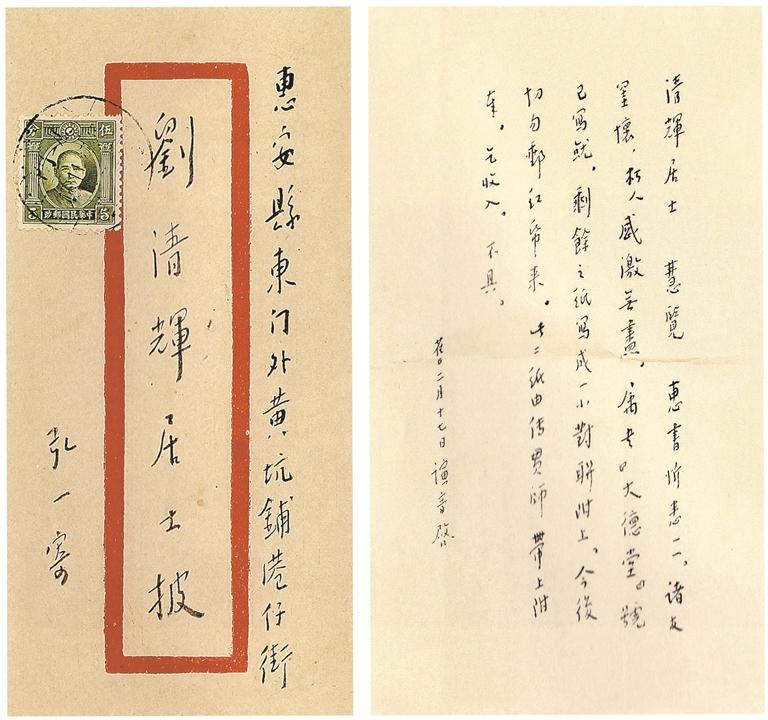 惠安縣東门外黄坑鋪港仔街
劉清輝居士披
弘一寄
伍分
中華民國郵政
5 5
清輝居士 慧覽 惠書忻悉一一。諸友
罣懷,朽人感激無盡。属书『大德堂』號
已寫就。剩餘之紙寫成一小對聯附上。今後
切勿郵红帋来。此二紙由傳貫師帶上附
奉。乞收入。不具。
舊二月十七日 演音啓